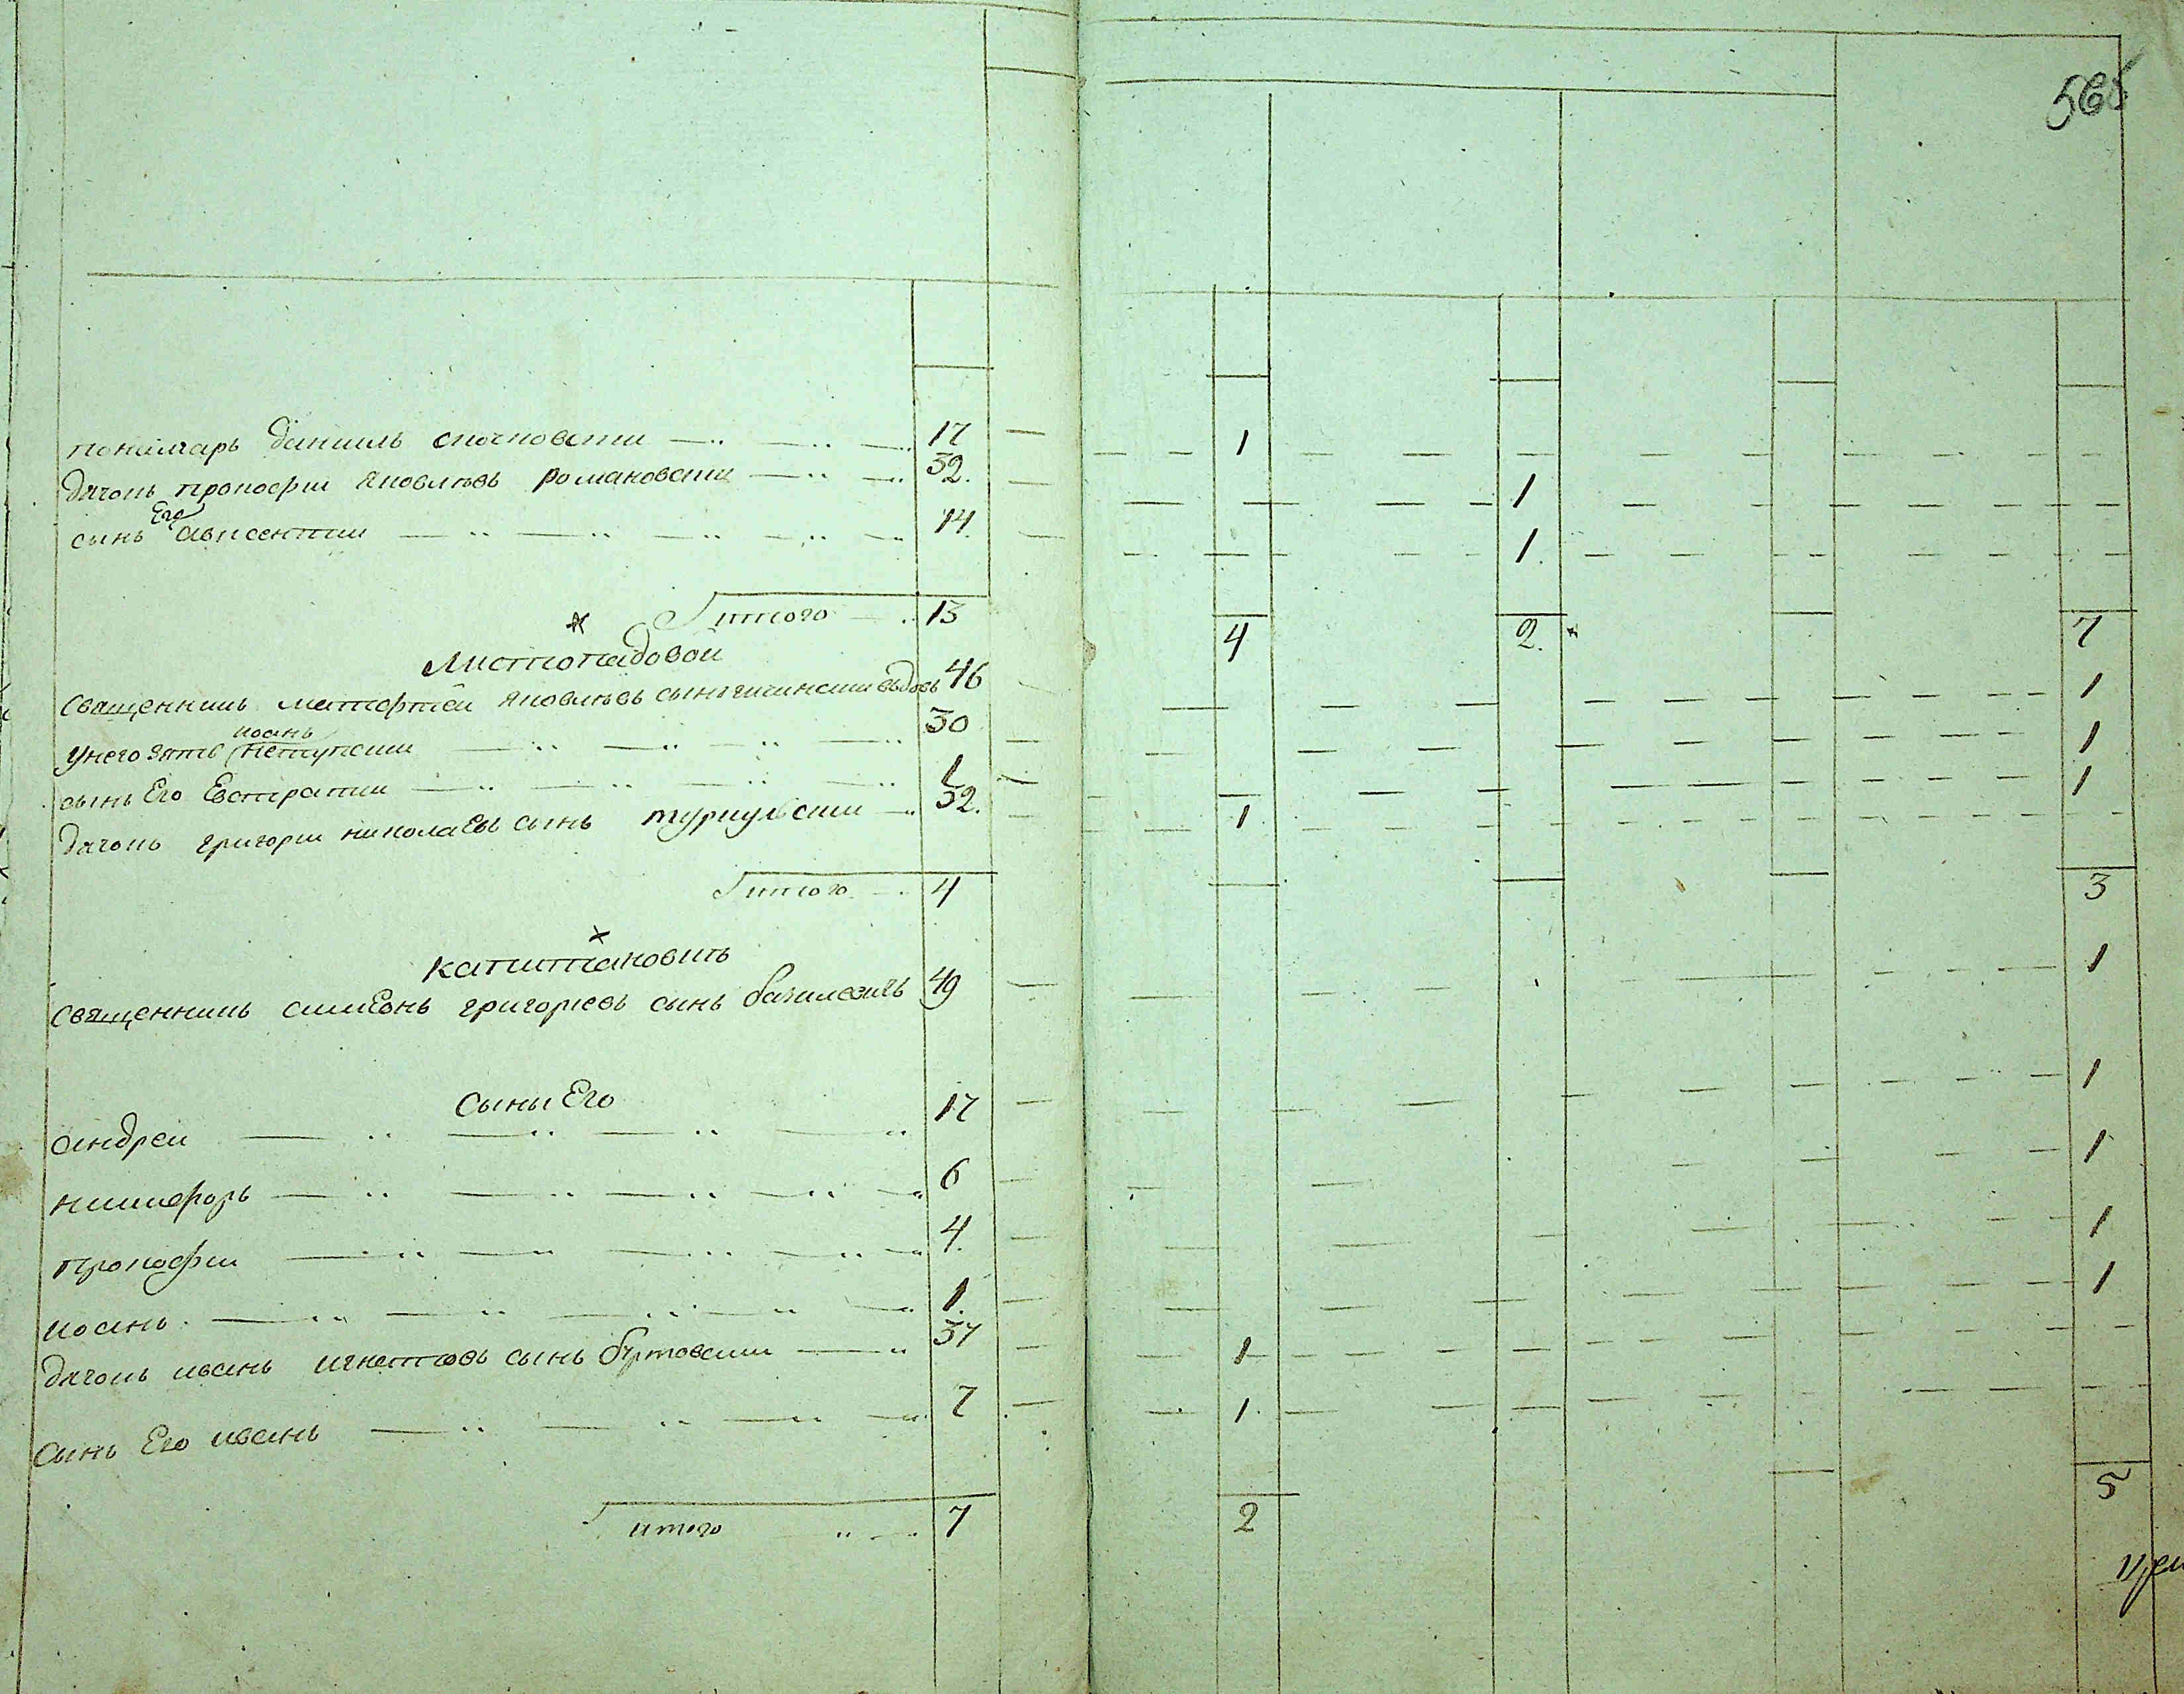 565
пономарь Даниилъ 17 1
дячокъ прокофии Яковлевъ романовски 32. 1
Его
сынъ авксентии 14. 1.
итого 13 4 2. 7
Листопадовой
священникъ матфтеи Яковлевъ сынъ вдовъ 46 1
иоанъ
у него зять 30 1
сынъ Его Евстратии 1 1
дячокъ григории николаевъ сынъ туркулский 32. 1
итого 4 3
капитановкъ
священникъ симеонъ григориевъ сынъ 49 1
сыны Его
андреи 17 1
никифоръ 6 1
прокофии 4. 1
иоанъ. 1. 1
дячокъ иванъ игнатовъ сынъ буртовски 37 1
Сынъ Его иванъ 7 1.
итого 7 2 5